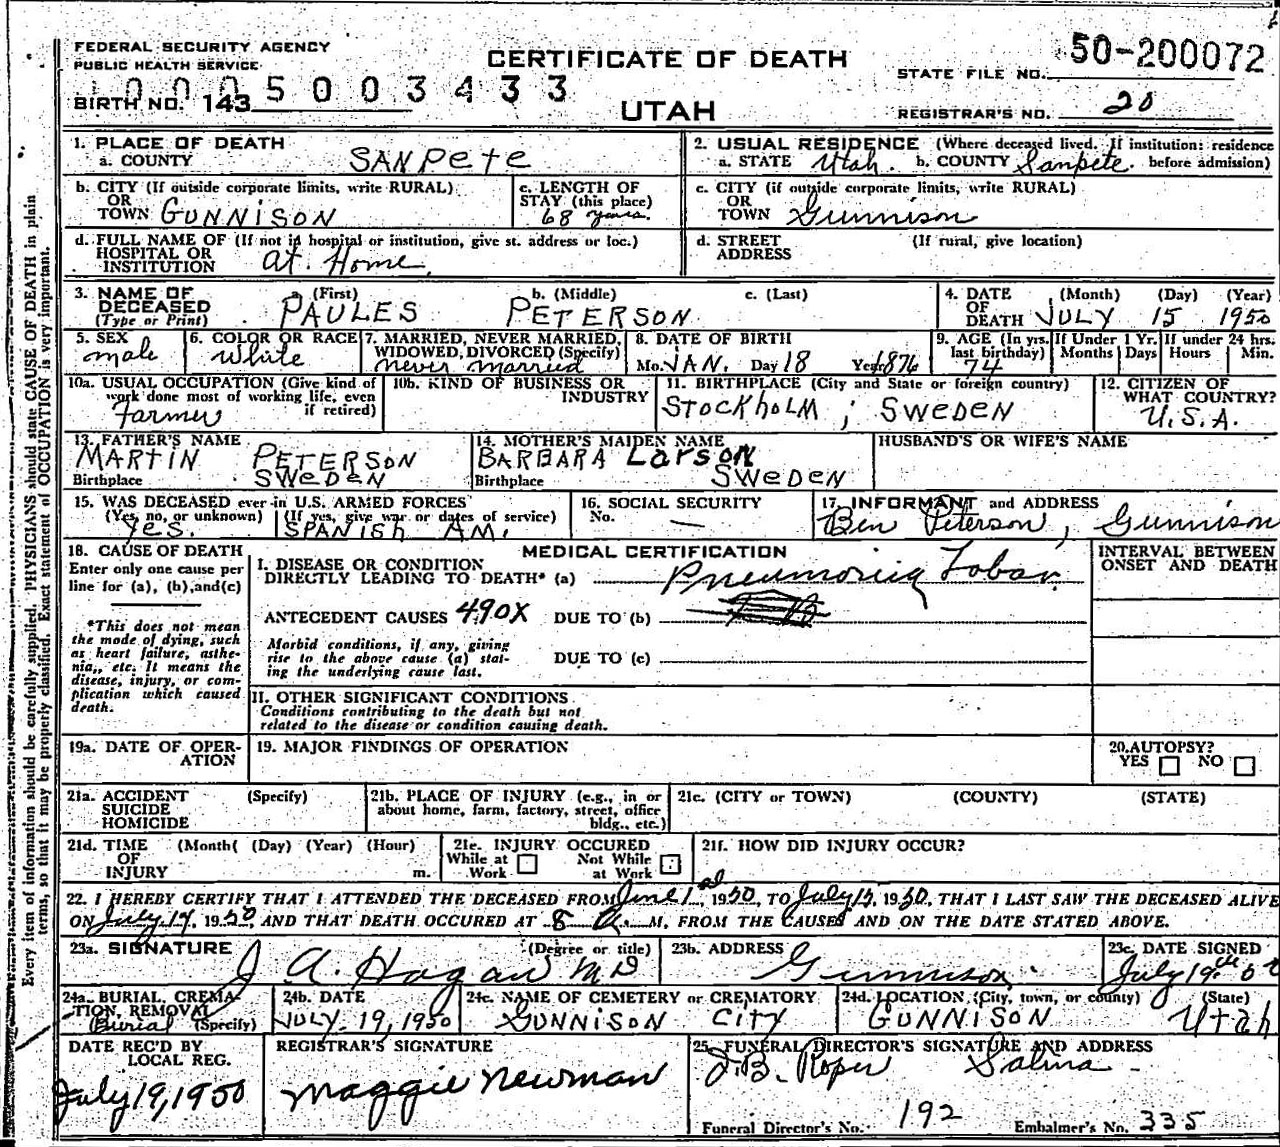 FEDERAL SECURITY AGENCY
PUBLIC HEALTH SERVICE
1 0 0 0 5 0 0 3 4 3 3
BIRTH NO. 143
CERTIFICATE OF DEATH
UTAH
STATE FILE NO. 50-200072
REGISTRAR'S NO. 20
1. PLACE OF DEATH
a. COUNTY SANPete
2. USUAL RESIDENCE (Where deceased lived. If institution: residence
a. STATE Utah. b. COUNTY Sanpete before admission)
b. CITY (If outside corporate limits, write RURAL)
OR
TOWN GUNNISON
c. LENGTH OF
STAY (this place)
68 years.
c. CITY (if outside corporate limits, write RURAL)
OR
TOWN Gunnison
d. FULL NAME OF (If not in hospital or institution, give st. address or loc.)
HOSPITAL OR
INSTITUTION at Home
d. STREET (If rural, give location)
ADDRESS
3. NAME OF a. (First) b. (Middle) c. (Last)
DECEASED PAULES PETERSON
(Type or Print)
4. DATE (Month) (Day) (Year)
OF
DEATH JULY 15 1950
5. SEX
male
6. COLOR OR RACE
White
7. MARRIED, NEVER MARRIED,
WIDOWED, DIVORCED (Specify)
never married
8. DATE OF BIRTH
Mo. JAN. Day 18 Year 1876
9. AGE (In yrs. If Under 1 Yr. If under 24 hrs.
last birthday) Months Days Hours Min.
74
10a. USUAL OCCUPATION (Give kind of
work done most of working life, even
Farmer if retired)
10b. KIND OF BUSINESS OR
INDUSTRY
11. BIRTHPLACE (City and State or foreign country)
STOCKHOLM ; SWEDEN
12. CITIZEN OF
WHAT COUNTRY?
U.S.A.
13. FATHER'S NAME
MARTIN PETERSON
Birthplace SWEDEN
14. MOTHER'S MAIDEN NAME
BARBARA LarsON
Birthplace SWEDEN
HUSBAND'S OR WIFE'S NAME
15. WAS DECEASED ever in U.S. ARMED FORCES
(Yes, no, or unknown) (If yes, give war or dates of service)
Yes. SPANISH AM.
16. SOCIAL SECURITY
No. —
17. INFORMANT and ADDRESS
Ben Peterson, Gunnison
18. CAUSE OF DEATH
Enter only one cause per
line for (a), (b), and (c)
*This does not mean
the mode of dying, such
as heart failure, asthe-
nia, etc. It means the
disease, injury, or com-
plication which caused
death.
MEDICAL CERTIFICATION
I. DISEASE OR CONDITION
DIRECTLY LEADING TO DEATH* (a) Pneumonia Lobar
ANTECEDENT CAUSES 490X DUE TO (b)
Morbid conditions, if any, giving
rise to the above cause (a) stat-
ing the underlying cause last.
DUE TO (c)
II. OTHER SIGNIFICANT CONDITIONS
Conditions contributing to the death but not
related to the disease or condition causing death.
INTERVAL BETWEEN
ONSET AND DEATH
19a. DATE OF OPER-
ATION
19. MAJOR FINDINGS OF OPERATION
20. AUTOPSY?
YES NO
21a. ACCIDENT (Specify)
SUICIDE
HOMICIDE
21b. PLACE OF INJURY (e.g., in or
about home, farm, factory, street, office
bldg., etc.)
21c. (CITY or TOWN) (COUNTY) (STATE)
21d. TIME (Month( (Day) (Year) (Hour)
OF
INJURY m.
21e. INJURY OCCURED
While at Work Not While at Work
21f. HOW DID INJURY OCCUR?
22. I HEREBY CERTIFY THAT I ATTENDED THE DECEASED FROM June 1st, 1950, TO July 15, 1950, THAT I LAST SAW THE DECEASED ALIVE
ON July 14, 1950, AND THAT DEATH OCCURED AT 8 A. M. FROM THE CAUSES AND ON THE DATE STATED ABOVE.
23a. SIGNATURE (Degree or title)
J A. Hagan MD
23b. ADDRESS
Gunnison
23c. DATE SIGNED
July 19th 50
24a. BURIAL, CREMA-
TION, REMOVAL
Burial (Specify)
24b. DATE
JULY 19, 1950
24c. NAME OF CEMETERY or CREMATORY
GUNNISON CITY
24d. LOCATION (City, town, or county) (State)
GUNNISON Utah
DATE REC'D BY
LOCAL REG.
July 19, 1950
REGISTRAR'S SIGNATURE
Maggie Newman
25. FUNERAL DIRECTOR'S SIGNATURE AND ADDRESS
J.B. Roper Salina
Funeral Director's No. 192 Embalmer's No. 335
Every item of information should be carefully supplied. PHYSICIANS should state CAUSE OF DEATH in plain
terms, so that it may be properly classified. Exact statement of OCCUPATION is very important.